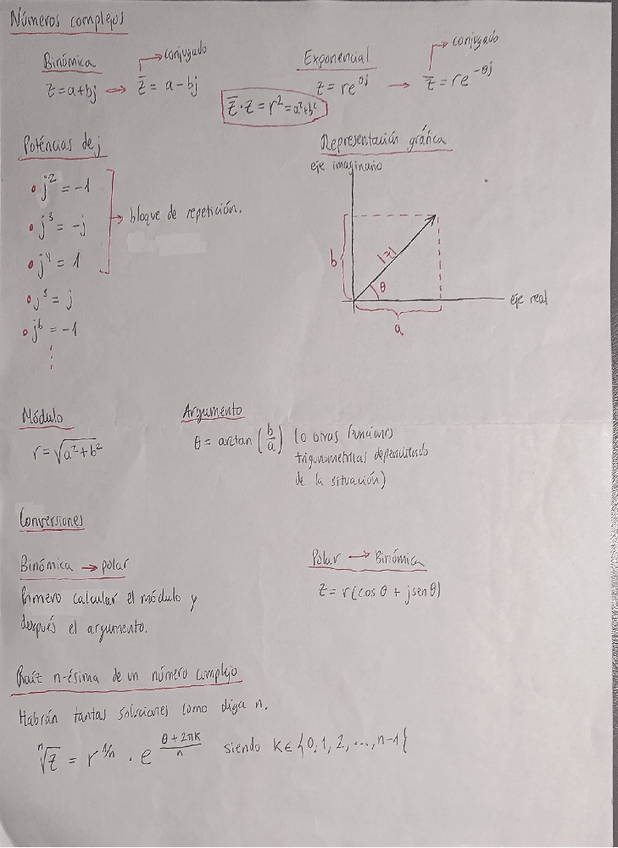 Números complejos
Binómica
z = a+bj → z̅ = a-bj
conjugado
Exponencial
z = re^θj → z̅ = re^-θj
conjugado
z̅·z = r² = a²+b²
Poténcias de j
j² = -1
j³ = -j
j⁴ = 1
bloque de repetición.
j⁵ = j
j⁶ = -1
Representación gráfica
eje imaginario
b
|z|
θ
eje real
a
Módulo
r = √a²+b²
Argumento
θ = arctan (b/a) (o otras funciones
trigonométricas dependiendo
de la situación)
Conversiones
Binómica → polar
Primero calcular el módulo y
después el argumento.
Polar → Binómica
z = r(cos θ + jsen θ)
Raíz n-ésima de un número complejo
Habrán tantas soluciones como diga n.
ⁿ√z = r^1/n · e^(θ+2πk)/n siendo k∈{0, 1, 2, ..., n-1{